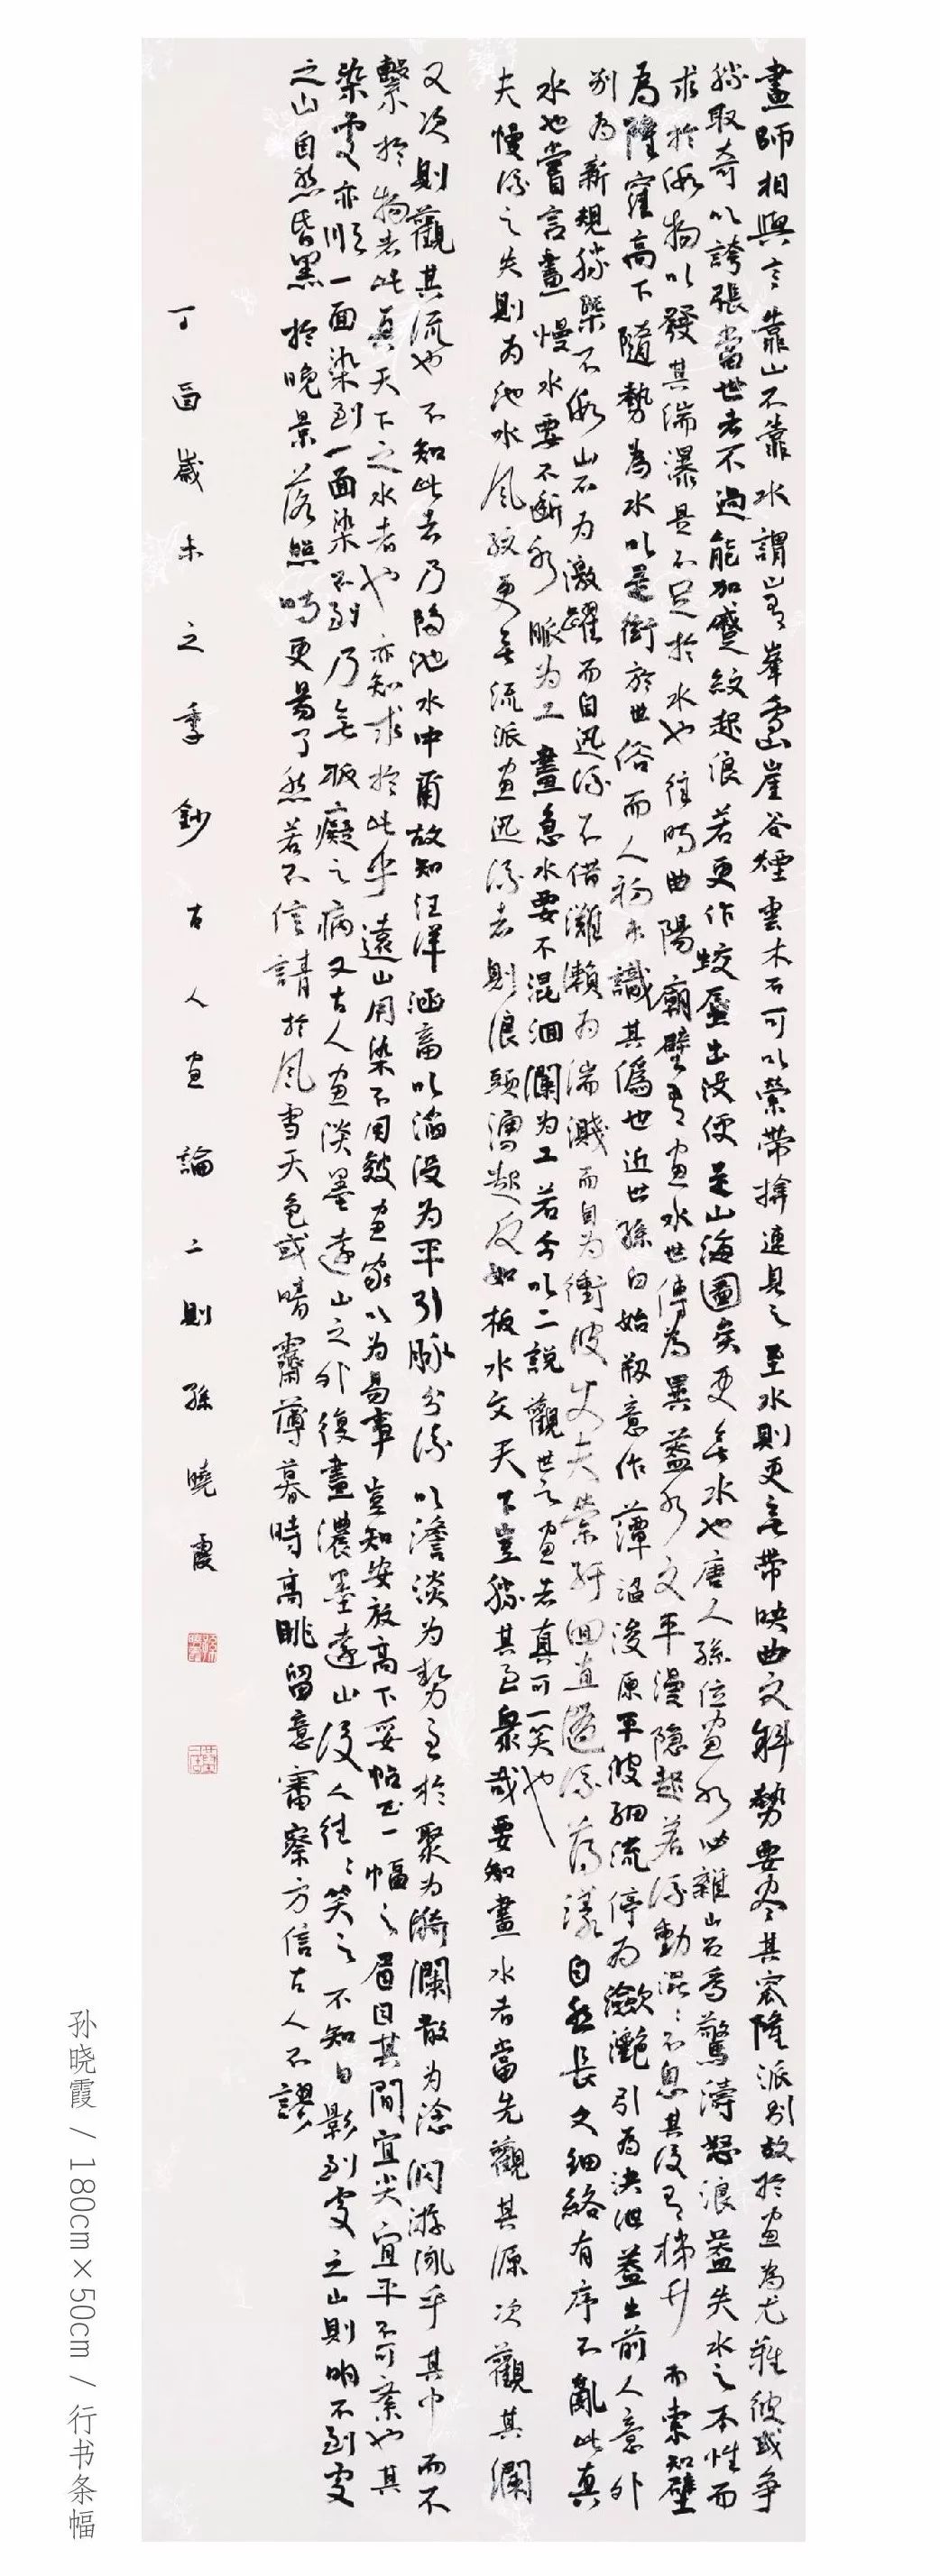 畫師相與言靠山不靠水謂山有峯巒崖谷煙雲木石可以縈帶掩連見之至水則更無帶映曲文斜勢要盡其窊隆派別故於画為尤難彼或争
勝取奇以誇張當世者不過能加蹙紋起浪若更作蛟蜃出没便是山海圖矣更無水也唐人孫位画水必雜山石為驚濤怒浪蓋失水之本性而
求於假物以發其湍瀑是不足於水也往時曲陽廟壁有画水世傳為異蓋水文平漫隐起若流動混混不息其後有梯升而索知壁
為隆窪高下隨勢為水以是衒於世俗而人初未識其僞也近世孫白始刱意作潭滔浚原平波細流停為瀲灔引為決泄蓋出前人意外
别為新規勝槩不假山石為激躍而自迅流不借灘瀨為湍濺而自為衝波使夫縈紆曲直隨流蕩漾自然長文細絡有序不亂此真
水也嘗言畫慢水要不斷水脈为工畫急水要不混洄瀾为工若今以二説觀世之画者真可一笑也
夫慢流之失則为池水風紋更無流派画迅流者則浪頭湧起反如板水文天下豈勝其至衆哉要知畫水者當先觀其源次觀其瀾
又次則觀其流也不知此者乃陂池水中甭故知汪洋涵畜以滔没为平引脉分流以澹淡为勢至於聚为漪瀾散为淰閃游泳乎其中而不
繫於物者此真天下之水者也亦知求於此乎遠山用染不用皴画家以为易事豈知安放高下妥帖正一幅之眉目其間宜尖宜平不可紊也其
染處亦順一面染到一面染不到乃無板癡之病又古人画淡墨遠山之外復畫濃墨遠山後人往往笑之不知日影到處之山則明不到處
之山自然昏黑於晚景落照時更易了然若不信請於風雪天色或晴霽薄暮時高眺留意審察方信古人不謬
丁酉歲末之季鈔古人画論二則孫曉霞
孙晓霞 / 180cm×50cm / 行书条幅